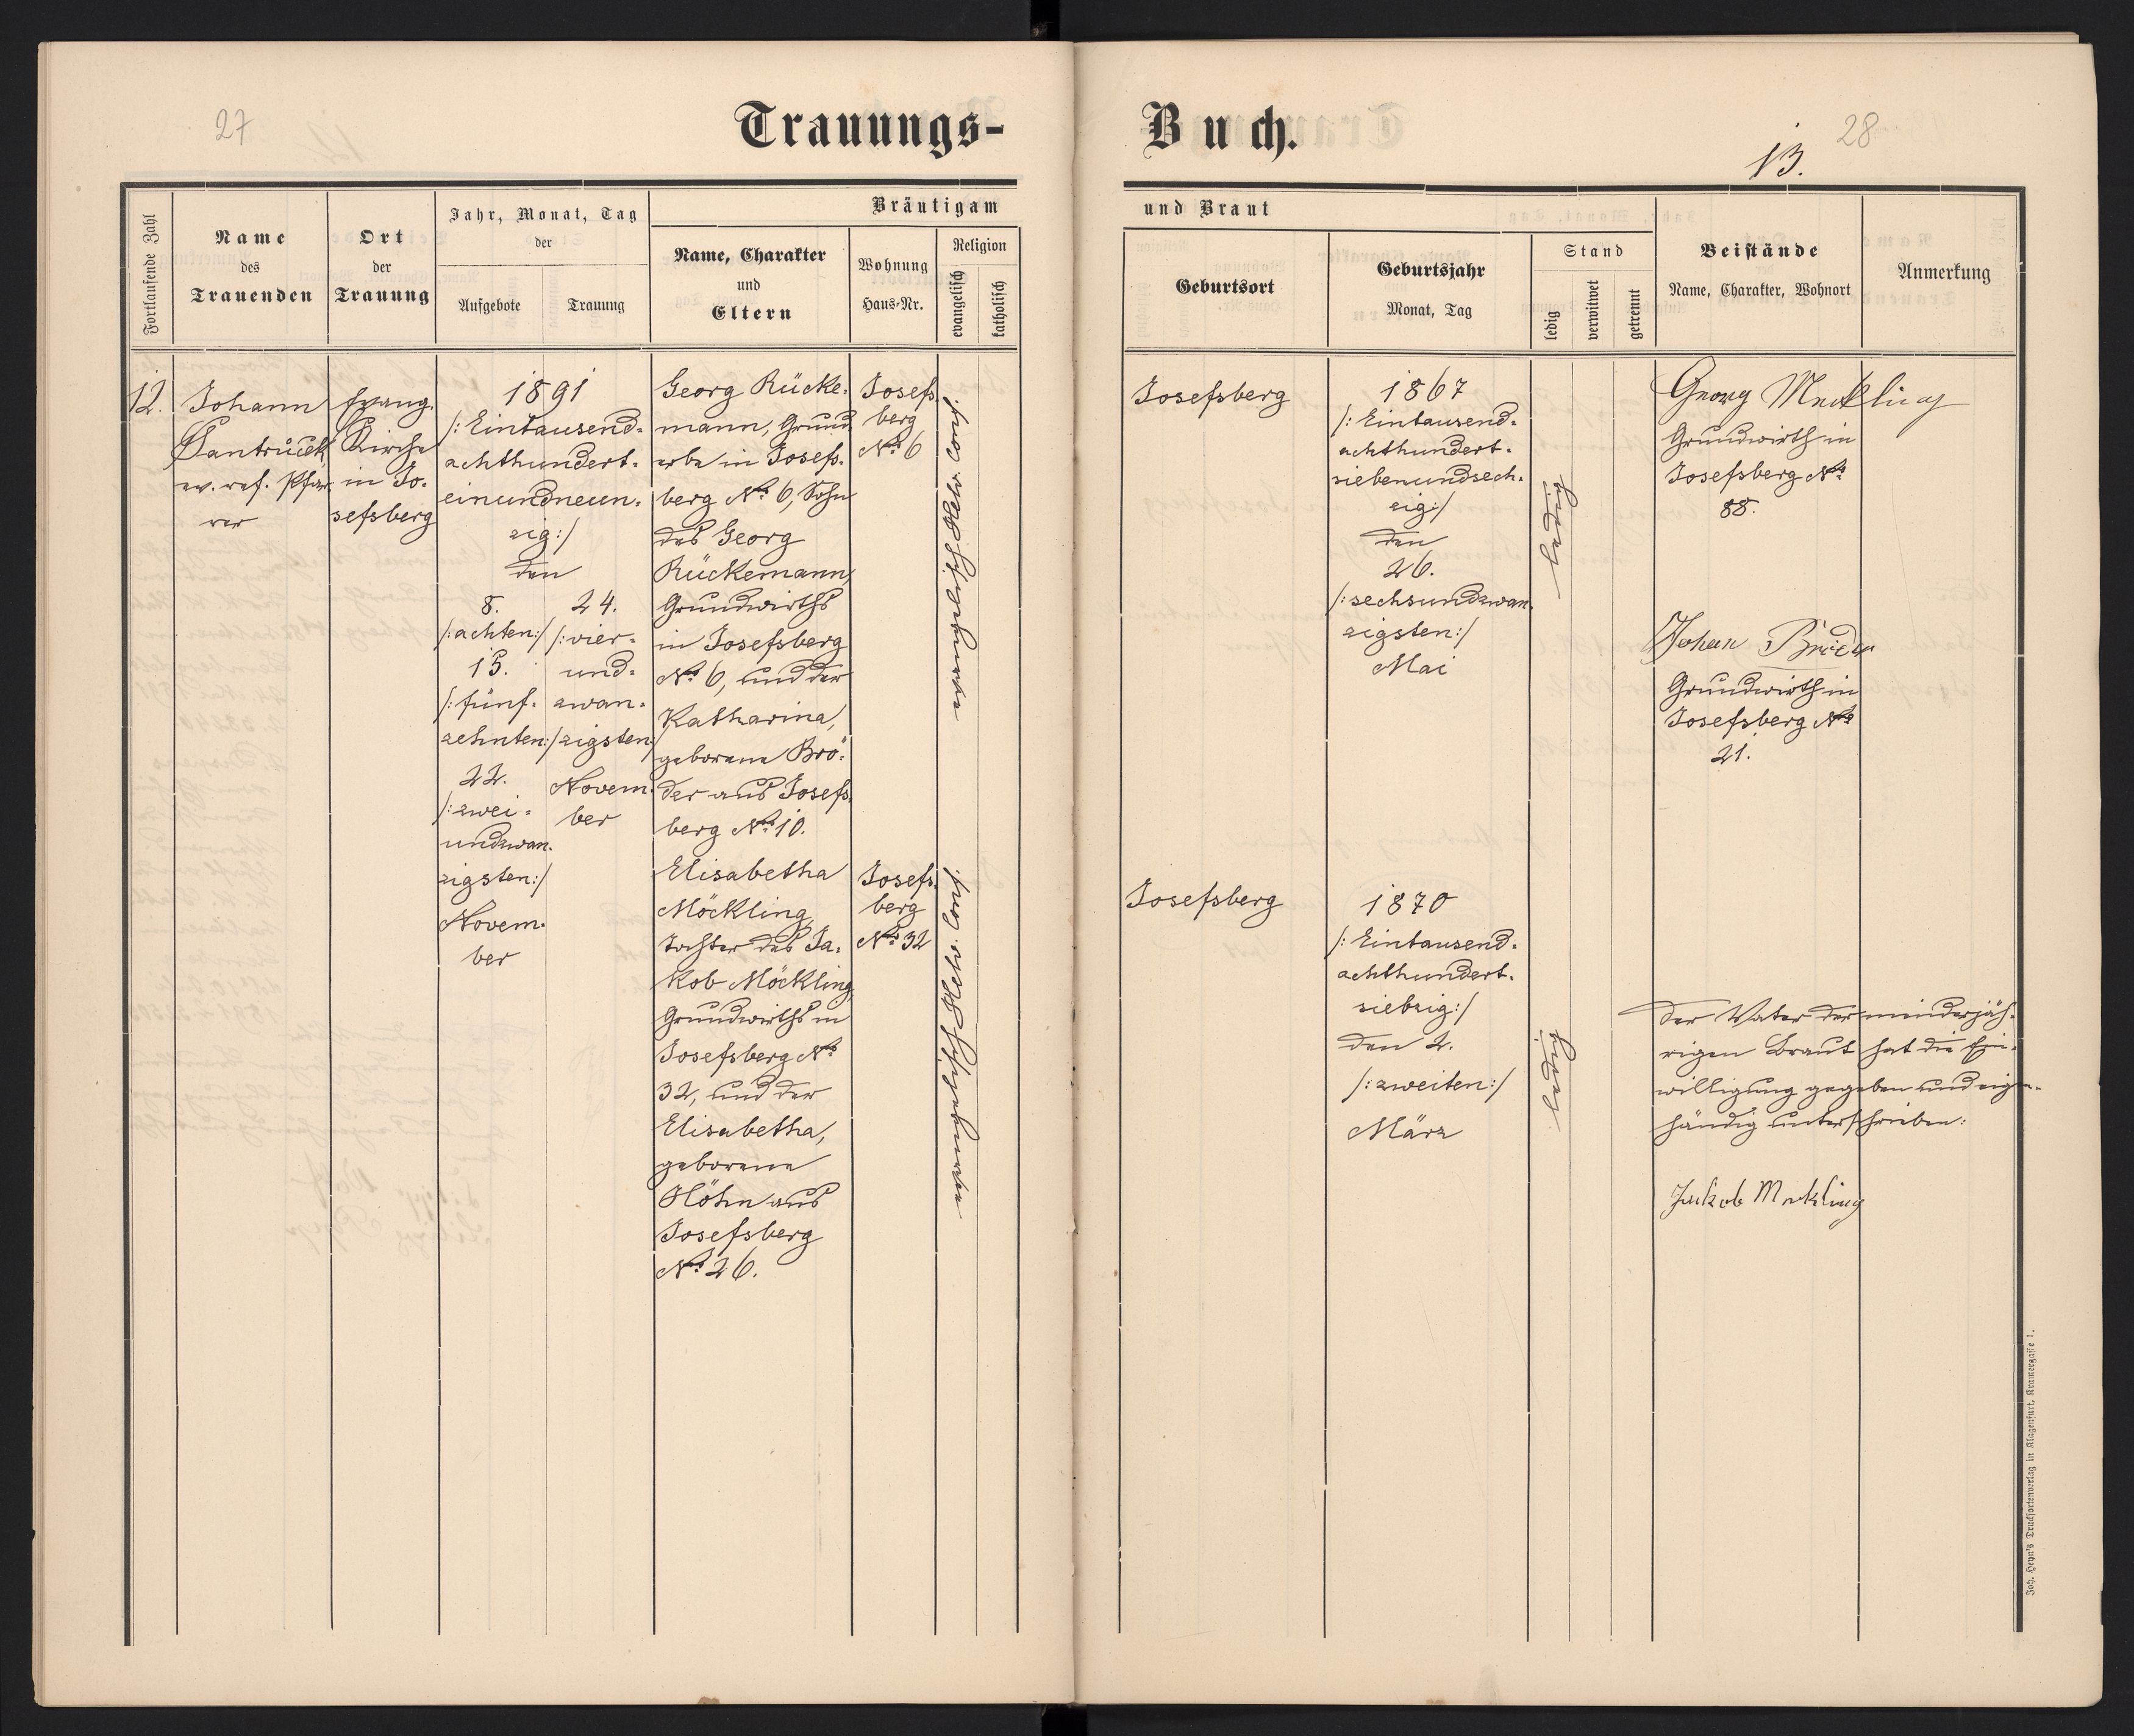 27
Trauungs-
Fortlaufende Zahl
Name
des
Trauenden
Ort
der
Trauung
Jahr, Monat, Tag
der
Aufgebote
Trauung
Bräutigam
Name, Charakter
und
Eltern
Wohnung
Haus-Nr.
Religion
evangelisch
katholisch
12.
Johann
Pantrůček,
ev. ref. Pfar-
rer
Evang.
Kirche
in Jo-
sefsberg
1891
/: Eintausend-
achthundert-
einundneun-
zig :/
den
8.
/: achten :/
15.
/: fünf-
zehnten :/
22.
/: zwei-
undzwan-
zigsten :/
Novem-
ber
24.
/: vier-
und-
zwan-
zigsten :/
Novem-
ber
Georg Rücke-
mann, Grund-
erbe in Josefs-
berg No 6, Sohn
des Georg
Rückemann,
Grundwirths
in Josefsberg
No 6, und der
Katharina,
geborene Brö-
der aus Josefs-
berg No 10.
Josefs-
berg
No 6
evangelisch Helv. Conf.
Elisabetha
Möckling,
Tochter des Ja-
kob Möckling,
Grundwirths in
Josefsberg No
32, und der
Elisabetha,
geborene
Höhn aus
Josefsberg
No 26.
Josefs-
berg
No 32
evangelisch Helv. Conf.
28
13.
Buch.
und Braut
Geburtsort
Geburtsjahr
Monat, Tag
Stand
ledig
verwitwet
getrennt
Beistände
Name, Charakter, Wohnort
Anmerkung
Josefsberg
1867
/: Eintausend-
achthundert-
siebenundsech-
zig :/
den
26.
/: sechsundzwan-
zigsten :/
Mai
ledig
Georg Meckling
Grundwirth in
Josefsberg No
88.
Johan Bröder
Grundwirth in
Josefsberg No
21.
Josefsberg
1870
/: Eintausend-
achthundert-
siebzig :/
den 2.
/: zweiten :/
März
ledig
Der Vater der minderjäh-
rigen Braut hat die Ein-
willigung gegeben und eigen-
händig unterschrieben:
Jakob Mekling
Joh. Heyn's Drucksortenverlag in Klagenfurt, Kramergasse 1.